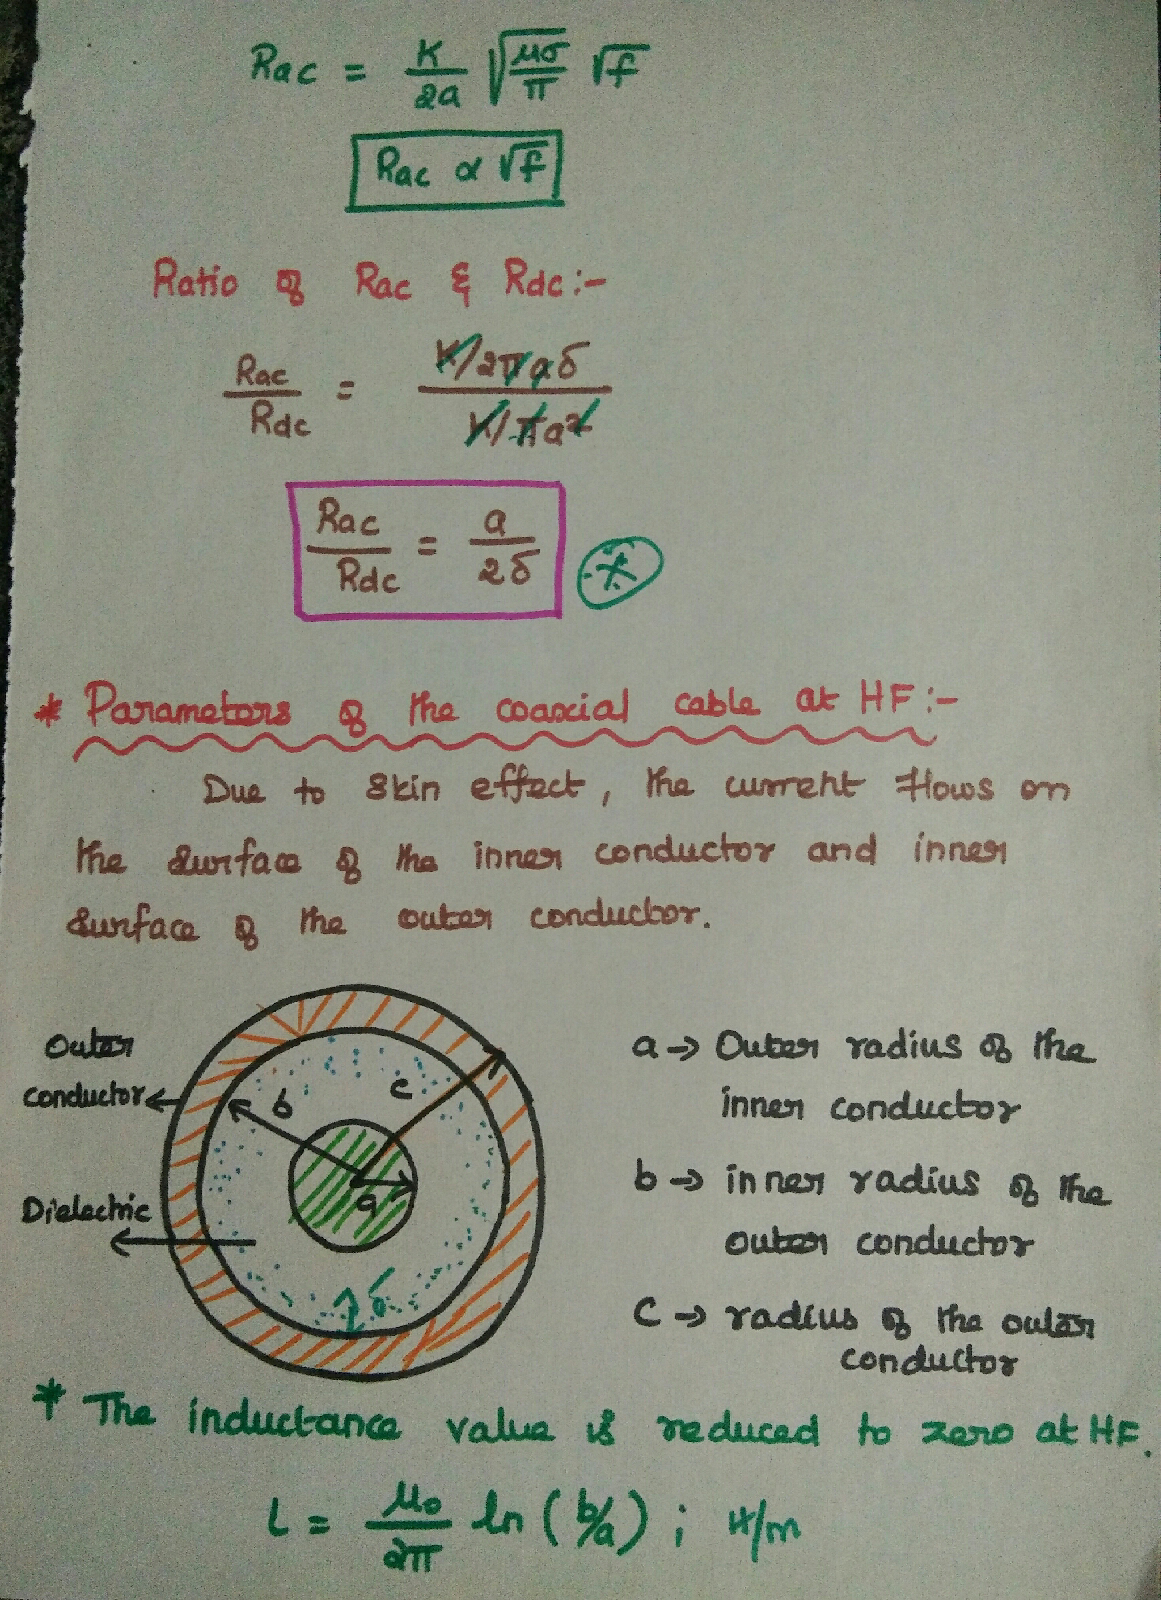 Rac = K/2a √(μσ/π) √f
Rac α √f
Ratio of Rac & Rdc:-
Rac/Rdc = (K/2πaδ)/(K/πa²)
Rac/Rdc = a/2δ
* Parameters of the coaxial cable at HF:-
Due to skin effect, the current flows on
the surface of the inner conductor and inner
surface of the outer conductor.
Outer
conductor
b
c
a
Dielectric
δ
a → Outer radius of the
inner conductor
b → inner radius of the
outer conductor
C → radius of the outer
conductor
* The inductance value is reduced to zero at HF.
L = μ₀/2π ln (b/a) ; H/m